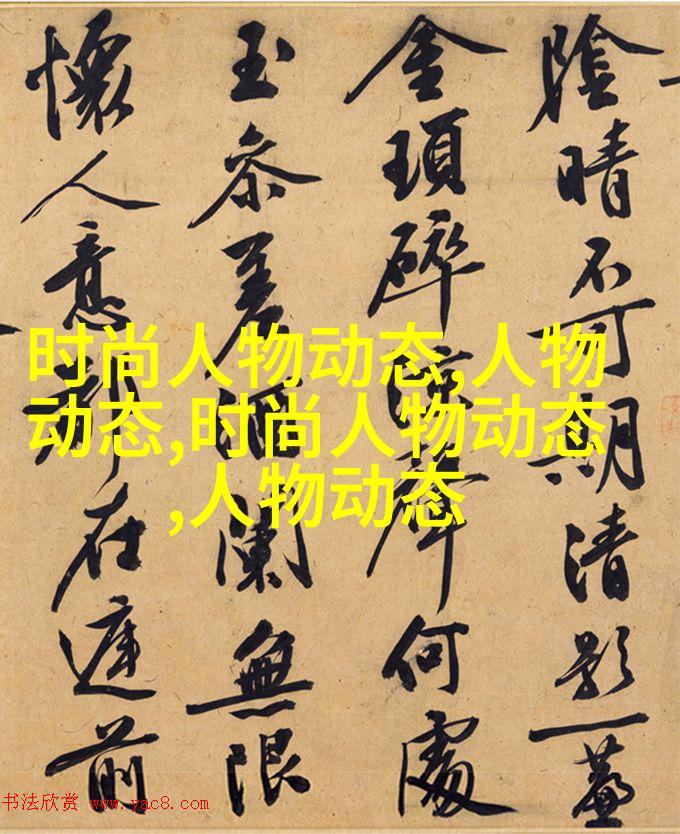 陰晴不可期清影一
金瑣碎聲何處
玉參差酒闌無限
懷人意都在前
时尚人物动态,人物
动态,时尚人物动态
,人物动态
书法欣赏 www.yac8.com